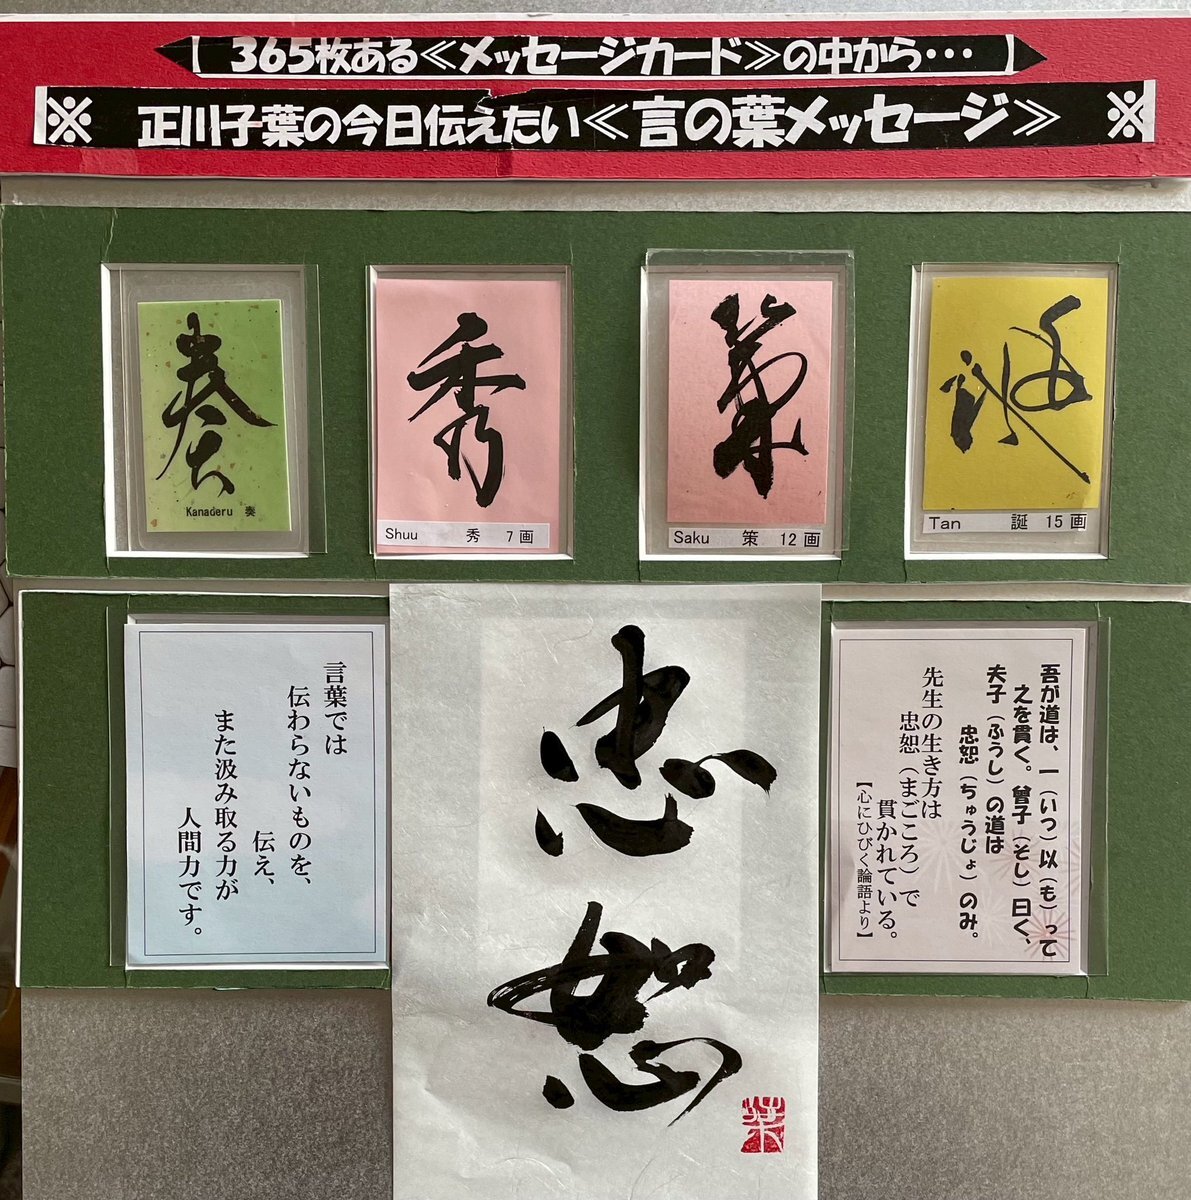 【 365枚ある≪メッセージカード≫の中から・・・ 】
※ 正川子葉の今日伝えたい≪言の葉メッセージ≫ ※
奏
Kanaderu 奏
秀
Shuu 秀 7画
策
Saku 策 12画
誕
Tan 誕 15画
言葉では
伝わらないものを、
伝え、
また汲み取る力が
人間力です。
忠
恕
葉
吾が道は、一（いつ）以（も）って
之を貫く。曾子（そし）曰く、
夫子（ふうし）の道は
忠恕（ちゅうじょ）のみ。
先生の生き方は
忠恕（まごころ）で
貫かれている。
【心にひびく論語より】